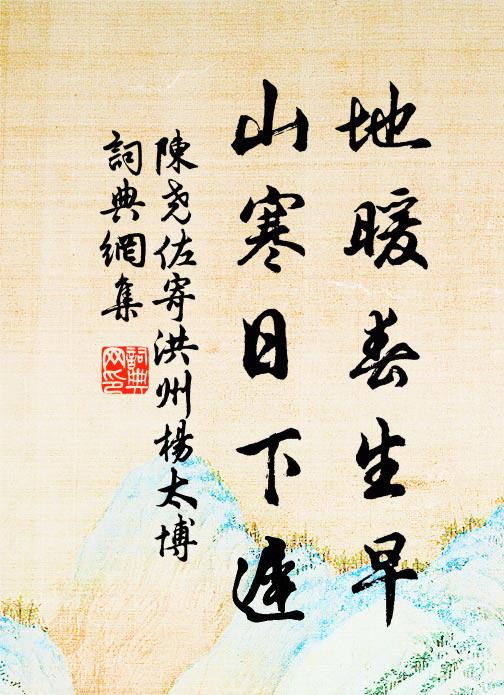 地暖春生早
山寒日下遲
陳堯佐寄洪州楊太博
詞典網集
詞典
网印